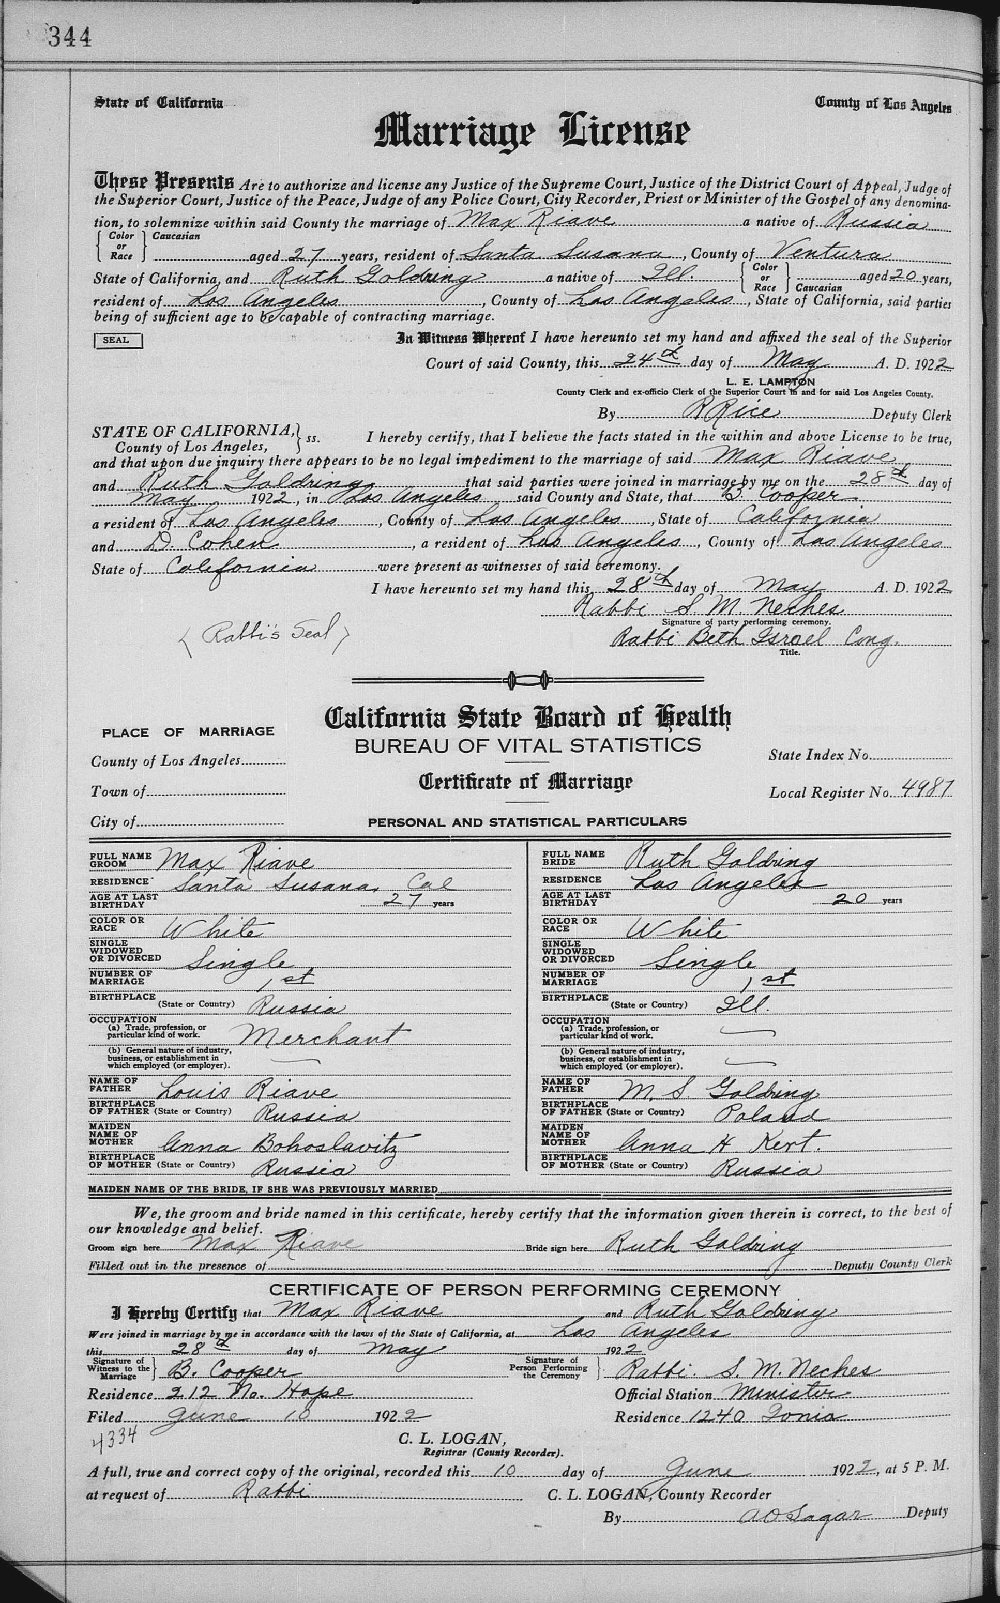 344
State of California County of Los Angeles
Marriage License
These Presents Are to authorize and license any Justice of the Supreme Court, Justice of the District Court of Appeal, Judge of
the Superior Court, Justice of the Peace, Judge of any Police Court, City Recorder, Priest or Minister of the Gospel of any denomina-
tion, to solemnize within said County the marriage of Max Riave a native of Russia
Color or Race Caucasian aged 27 years, resident of Santa Susana, County of Ventura
State of California, and Ruth Goldring a native of Ill. Color or Race Caucasian aged 20 years,
resident of Los Angeles, County of Los Angeles, State of California, said parties
being of sufficient age to be capable of contracting marriage.
SEAL In Witness Whereof I have hereunto set my hand and affixed the seal of the Superior
Court of said County, this 24th day of May A. D. 1922
L. E. LAMPTON
County Clerk and ex-officio Clerk of the Superior Court in and for said Los Angeles County.
By R Rice Deputy Clerk
STATE OF CALIFORNIA, County of Los Angeles, ss. I hereby certify, that I believe the facts stated in the within and above License to be true,
and that upon due inquiry there appears to be no legal impediment to the marriage of said Max Riave
and Ruth Goldring that said parties were joined in marriage by me on the 28th day of
May 1922, in Los Angeles said County and State, that B. Cooper
a resident of Los Angeles, County of Los Angeles, State of California
and D. Cohen, a resident of Los Angeles, County of Los Angeles
State of California were present as witnesses of said ceremony.
I have hereunto set my hand this 28th day of May A. D. 1922
Rabbi S M Neches
Signature of party performing ceremony.
(Rabbi's Seal) Rabbi Beth Israel Cong.
Title.
California State Board of Health
PLACE OF MARRIAGE BUREAU OF VITAL STATISTICS
County of Los Angeles State Index No.
Certificate of Marriage
Town of Local Register No. 4987
City of PERSONAL AND STATISTICAL PARTICULARS
FULL NAME GROOM Max Riave FULL NAME BRIDE Ruth Goldring
RESIDENCE Santa Susana, Cal RESIDENCE Los Angeles
AGE AT LAST BIRTHDAY 27 years AGE AT LAST BIRTHDAY 20 years
COLOR OR RACE White COLOR OR RACE White
SINGLE WIDOWED OR DIVORCED Single SINGLE WIDOWED OR DIVORCED Single
NUMBER OF MARRIAGE 1st NUMBER OF MARRIAGE 1st
BIRTHPLACE (State or Country) Russia BIRTHPLACE (State or Country) Ill.
OCCUPATION (a) Trade, profession, or particular kind of work. Merchant OCCUPATION (a) Trade, profession, or particular kind of work. —
(b) General nature of industry, business, or establishment in which employed (or employer). — (b) General nature of industry, business, or establishment in which employed (or employer). —
NAME OF FATHER Louis Riave NAME OF FATHER M. S. Goldring
BIRTHPLACE OF FATHER (State or Country) Russia BIRTHPLACE OF FATHER (State or Country) Poland
MAIDEN NAME OF MOTHER Anna Bohoslavitz MAIDEN NAME OF MOTHER Anna H Kert.
BIRTHPLACE OF MOTHER (State or Country) Russia BIRTHPLACE OF MOTHER (State or Country) Russia
MAIDEN NAME OF THE BRIDE, IF SHE WAS PREVIOUSLY MARRIED
We, the groom and bride named in this certificate, hereby certify that the information given therein is correct, to the best of
our knowledge and belief.
Groom sign here Max Riave Bride sign here Ruth Goldring
Filled out in the presence of Deputy County Clerk
CERTIFICATE OF PERSON PERFORMING CEREMONY
I Hereby Certify that Max Riave and Ruth Goldring
Were joined in marriage by me in accordance with the laws of the State of California, at Los Angeles
this 28th day of May 1922
Signature of Witness to the Marriage B. Cooper Signature of Person Performing the Ceremony Rabbi. S. M. Neches
Residence 212 No. Hope Official Station Minister
Filed June 10 1922 Residence 1240 Ionia
4334 C. L. LOGAN,
Registrar (County Recorder).
A full, true and correct copy of the original, recorded this 10 day of June 1922, at 5 P. M.
at request of Rabbi C. L. LOGAN, County Recorder
By A O Sagar Deputy